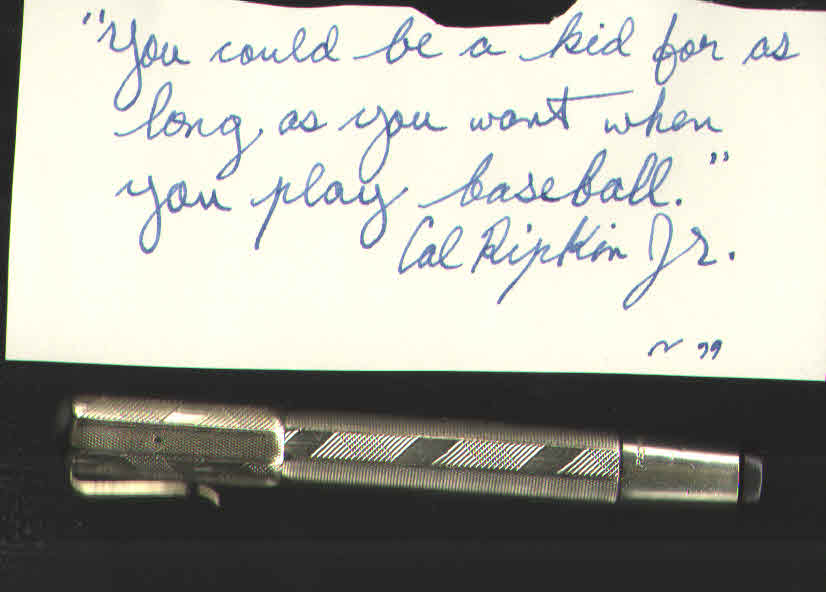 "You could be a kid for as
long as you want when
you play baseball."
Cal Ripkin Jr.
~ 99